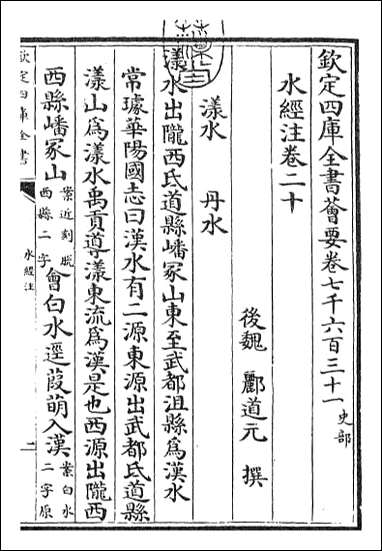 欽定四庫全書薈要卷七千六百三十一 史部
水經注卷二十
後魏 酈道元 撰
漾水 丹水
漾水出隴西氐道縣嶓冢山東至武都沮縣為漢水
常璩華陽國志曰漢水有二源東源出武都氐道縣
漾山為漾水禹貢導漾東流為漢是也西源出隴西
西縣嶓冢山
案近刻脱
西縣二字
會白水逕葭萌入漢
案白水
二字原
欽定四庫全書
水經注